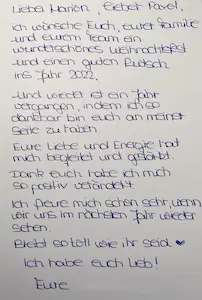 Liebe Marion, lieber Pavel,
ich wünsche Euch, eurer Familie
und eurem Team ein
wunderschönes Weihnachtsfest
und einen guten Rutsch
ins Jahr 2022.
Und wieder ist ein Jahr
vergangen, indem ich so
dankbar bin euch an meiner
Seite zu haben.
Eure Liebe und Energie hat
mich begleitet und gestärkt.
Dank euch habe ich mich
so positiv verändert.
Ich freue mich schon sehr, wenn
wir uns im nächsten Jahr wieder
sehen.
Bleibt so toll wie ihr seid ♥
Ich habe euch lieb!
Eure